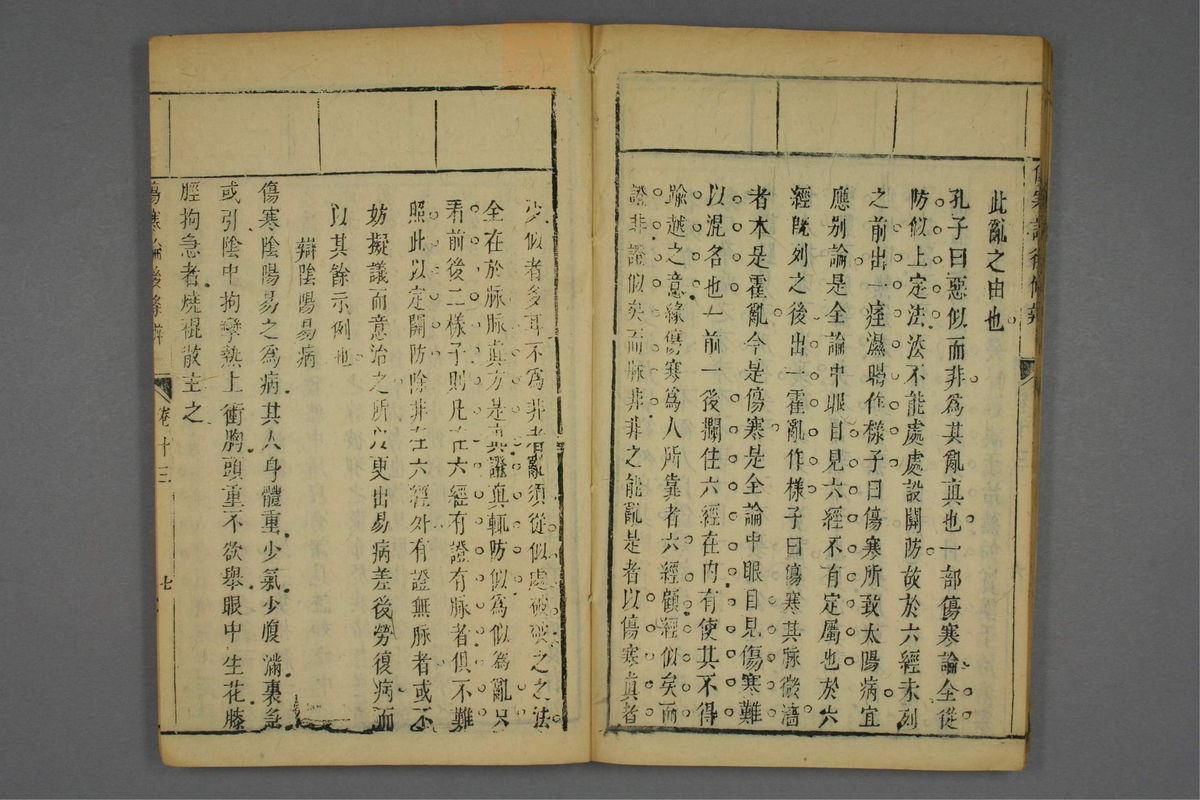 此亂之由也
孔子曰惡似而非為其亂真也一部傷寒論全從
防似上定法法不能處處設關防故於六經未列
之前出一痙濕暍作樣子曰傷寒所致太陽病宜
應別論是全論中眼目見六經不有定屬也於六
經既列之後出一霍亂作樣子曰傷寒其脉微濇
者本是霍亂今是傷寒是全論中眼目見傷寒難
以混名也一前一後攔住六經在內有使其不得
踰越之意緣傷寒為人所靠者六經顧經似矣而
證非證似矣而脉非非之能亂是者以傷寒真者
少似者多耳不為非者亂須從似處破之之法
全在於脉脉真方是真證真輒防似為似為亂只
看前後二樣子則凡在六經有證有脉者俱不難
照此以定關防除非在六經外有證無脉者或不
妨擬議而意治之所以更出易病差後勞復病而
以其餘示例也
辯陰陽易病
傷寒陰陽易之為病其人身體重少氣少腹滿裏急
或引陰中拘攣熱上衝胸頭重不欲舉眼中生花膝
脛拘急者燒裩散主之
傷寒論後條辨 卷十三 七